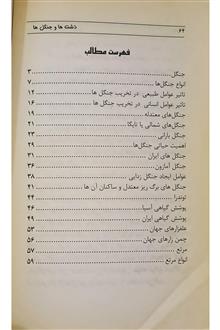 ۶۴ دشت ها و جنگل ها
فهرست مطالب
جنگل ۳
انواع جنگل‌ها ۷
تاثیر عوامل طبیعی در تخریب جنگل ها ۱۲
تاثیر عوامل انسانی در تخریب جنگل ها ۱۶
جنگل‌های معتدله ۱۹
جنگل‌های شمالی یا تایگا ۲۱
جنگل بارانی ۲۳
اهمیت حیاتی جنگل‌ها ۲۹
جنگل های ایران ۳۱
جنگل آمازون ۳۶
عوامل ایجاد جنگل زدایی ۳۸
جنگل های برگ ریز معتدل و ساکنان آن ها ۴۱
توندرا ۴۲
پوشش گیاهی آسیا ۴۶
پوشش گیاهی ایران ۴۹
علفزارهای جهان ۵۳
چمن زارهای جهان ۵۶
مرتع ۵۷
انواع مرتع ۵۹